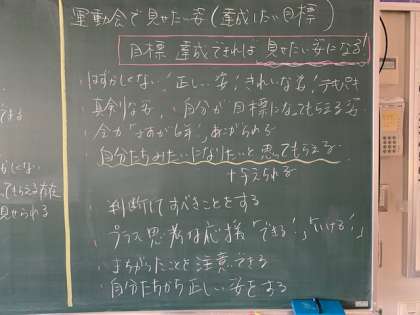 運動会で見せたい姿(達成したい目標)
目標達成できれば見せたい姿になる!
・はずかしくない!正しい姿!きれいな姿!
・真剣な姿、自分が目標になってもらえる姿
・全力「さすが6年」、あこがられる
・自分たちみたいになりたいと思ってもらえる
+与えられる
・判断してすべきことをする
・プラス思考な応援「できる!」「いける!」
・まちがったことを注意できる
・自分たちから正しい姿をする
できる
しくない
見せられる